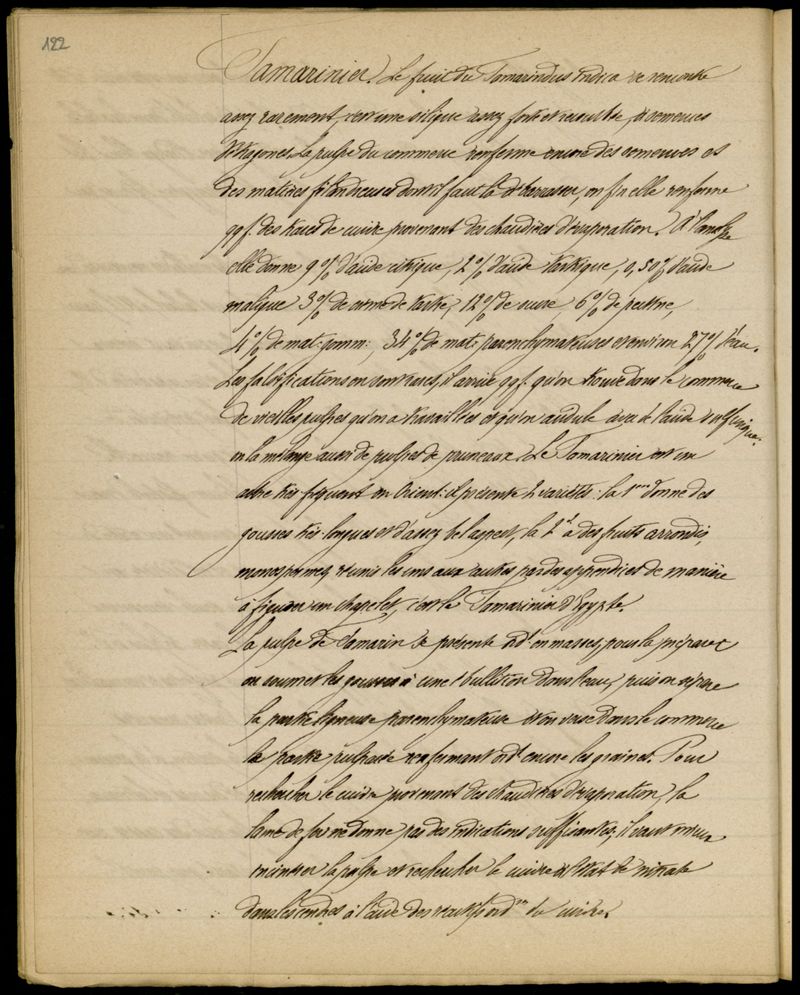 122
Tamarinier. Le fruit du Tamarindus indica se rencontre
assez rarement, c'est une silique assez forte et recourbée, à semences
. La pulpe du commerce renferme encore des semences et
des matières filandreuses dont il faut la débarrasser, enfin elle renferme
qqf. des traces de cuivre provenant des chaudières d'évaporation. A l'analyse
elle donne 9 % d'acide citrique, 2 % d'acide tartrique, 0,50 % d'acide
malique 3 % de crème de tartre, 12 % de sucre, 6 % de pectine,
4 % de mat. gomm:, 34 % de mat. parenchymateuses et environ 27 % d'eau.
Les falsifications en sont rares, il arrive qqf. qu'on trouve dans le commerce
de vieilles pulpes qu'on a travaillées et qu'on acidule avec de l'acide sulfurique.
on la mélange aussi de pulpes de pruneaux. Le Tamarinier est un
arbre très fréquent en Orient: il présente 2 variétés: la 1ère donne des
gousses très longues et d'assez bel aspect, la 2d a des fruits arrondis,
monospermes, réunis les uns aux autres par des appendices de manière
à figurer un chapelet, c'est le Tamarinier d'Egypte.
La pulpe de Tamarin se présente ordt en masses, pour la préparer
on soumet les gousses à une ébullition dans l'eau, puis on sépare
la partie ligneuse parenchymateuse et on verse dans le commerce
la partie pulpeuse renfermant ordt encore les graines. Pour
rechercher le cuivre provenant des chaudières d'évaporation, la
lame de fer ne donne pas des indications suffisantes, il vaut mieux
incinérer la pulpe et rechercher le cuivre à l'état de nitrate
dans les cendres à l'aide des réactifs ordres du cuivre.